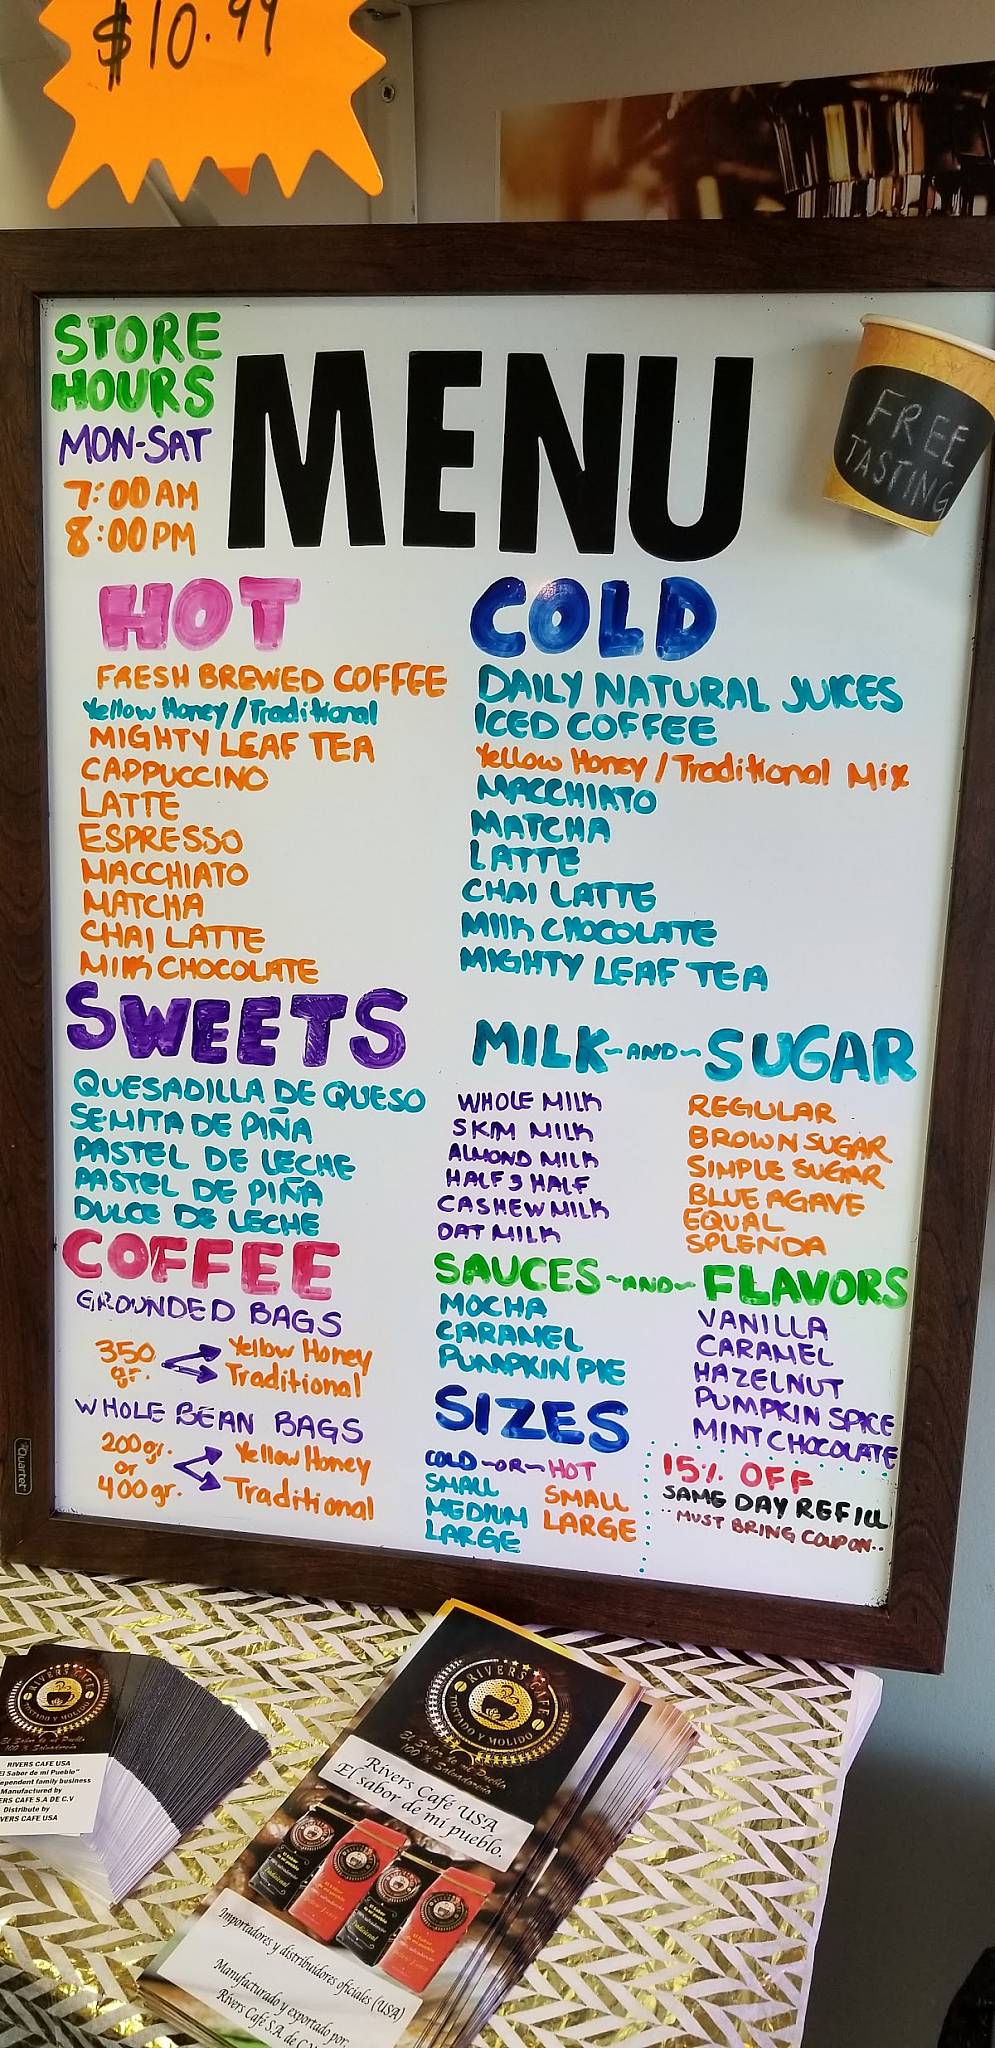 $10.99
STORE
HOURS
MON-SAT
7:00AM
8:00PM
MENU
FREE
TASTING
HOT
FRESH BREWED COFFEE
Yellow Honey/Traditional
MIGHTY LEAF TEA
CAPPUCCINO
LATTE
ESPRESSO
MACCHIATO
MATCHA
CHAI LATTE
MILK CHOCOLATE
COLD
DAILY NATURAL JUICES
ICED COFFEE
Yellow Honey/Traditional Mix
MACCHIATO
MATCHA
LATTE
CHAI LATTE
MILK CHOCOLATE
MIGHTY LEAF TEA
SWEETS
QUESADILLA DE QUESO
SEMITA DE PIÑA
PASTEL DE LECHE
PASTEL DE PIÑA
DULCE DE LECHE
MILK~AND~SUGAR
WHOLE MILK
SKIM MILK
ALMOND MILK
HALF & HALF
CASHEW MILK
OAT MILK
REGULAR
BROWN SUGAR
SIMPLE SUGAR
BLUE AGAVE
EQUAL
SPLENDA
COFFEE
GROUNDED BAGS
350 gr.
Yellow Honey
Traditional
WHOLE BEAN BAGS
200gr.
or
400gr.
Yellow Honey
Traditional
SAUCES~AND~FLAVORS
MOCHA
CARAMEL
PUMPKIN PIE
VANILLA
CARAMEL
HAZELNUT
PUMPKIN SPICE
MINT CHOCOLATE
SIZES
COLD~OR~HOT
SMALL
MEDIUM
LARGE
SMALL
LARGE
15% OFF
SAME DAY REFILL
..MUST BRING COUPON..
Quartet
RIVERS CAFE
TOSTADO Y MOLIDO
El Sabor de mi Pueblo
100% Salvadoreño
RIVERS CAFE USA
El Sabor de mi Pueblo"
ependent family business
Manufactured by
ERS CAFE S.A DE C.V
Distribute by
VERS CAFE USA
RIVERS CAFE
TOSTADO Y MOLIDO
El Sabor de mi Pueblo
100% Salvadoreño
Rivers Café USA
El sabor de mi pueblo.
Importadores y distribuidores oficiales (USA)
Manufacturado y exportado por,
Rivers Café S.A. de C.V